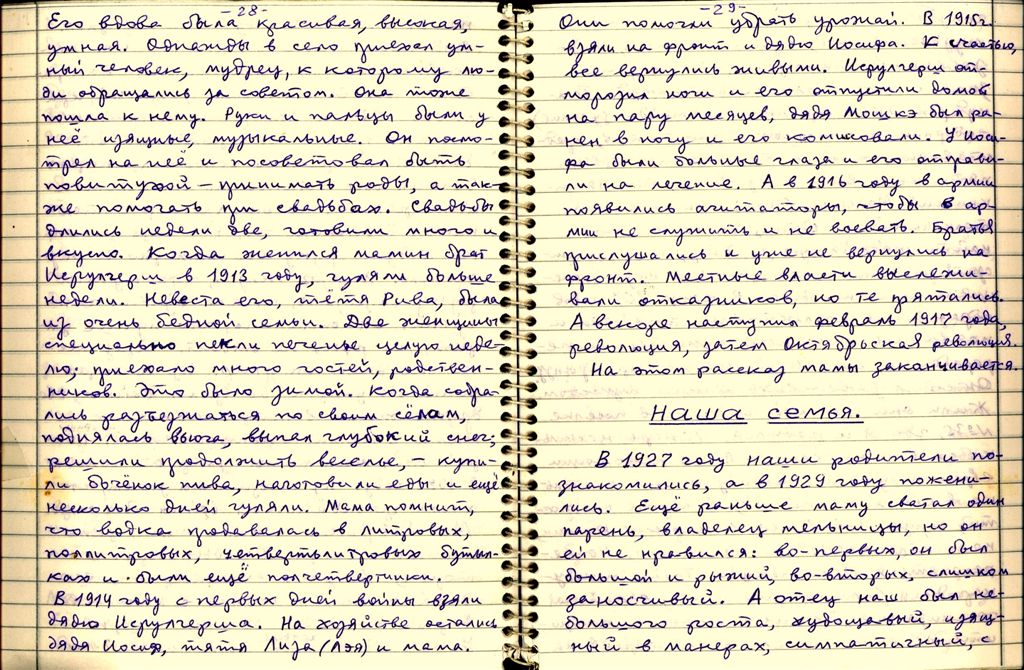 -28-
Его вдова была красивая, высокая,
умная. Однажды в село приехал ум-
ный человек, мудрец, к которому лю-
ди обращались за советом. Она тоже
пошла к нему. Руки и пальцы были у
неё изящные, музыкальные. Он посмо-
трел на неё и посоветовал быть
повитухой – принимать роды, а так-
же помогать при свадьбах. Свадьбы
длились недели две, готовили много и
вкусно. Когда женился мамин брат
Исрулгерш в 1913 году, гуляли больше
недели. Невеста его, тётя Рива, была
из очень бедной семьи. Две женщины
специально пекли печенье целую неде-
лю; приехало много гостей, родствен-
ников. Это было зимой. Когда собра-
лись разъезжаться по своим сёлам,
поднялась вьюга, выпал глубокий снег;
решили продолжить веселье, – купи-
ли бочёнок пива, наготовили еды и ещё
несколько дней гуляли. Мама помнит,
что водка продавалась в литровых,
поллитровых, четвертьлитровых бутыл-
ках и были ещё полчетвертинки.
В 1914 году с первых дней войны взяли
дядю Исрулгерша. На хозяйстве остались
дядя Иосиф, тятя Лиза (Лэя) и мама.
-29-
Они помогли убрать урожай. В 1915г.
взяли на фронт и дядю Иосифа. К счастью,
все вернулись живыми. Исрулгерш от-
морозил ноги и его отпустили домой
на пару месяцев, дядя Мошкэ был ра-
нен в ногу и его комисовали. У Иоси-
фа были больные глаза и его отправи-
ли на лечение. А в 1916 году в армии
появились агитаторы, чтобы в ар-
мии не служить и не воевать. Братья
прислушались и уже не вернулись на
фронт. Местные власти выслежи-
вали отказников, но те прятались.
А вскоре наступил февраль 1917 года,
революция, затем Октябрьская революция.
На этом рассказ мамы заканчивается.
Наша семья.
В 1927 году наши родители по-
знакомились, а в 1929 году пожени-
лись. Ещё раньше маму сватал один
парень, владелец мельницы, но он
ей не нравился: во-первых, он был
большой и рыжий, во-вторых, слишком
заносчивый. А отец наш был не-
большого роста, худощавый, изящ-
ный в манерах, симпатичный, с